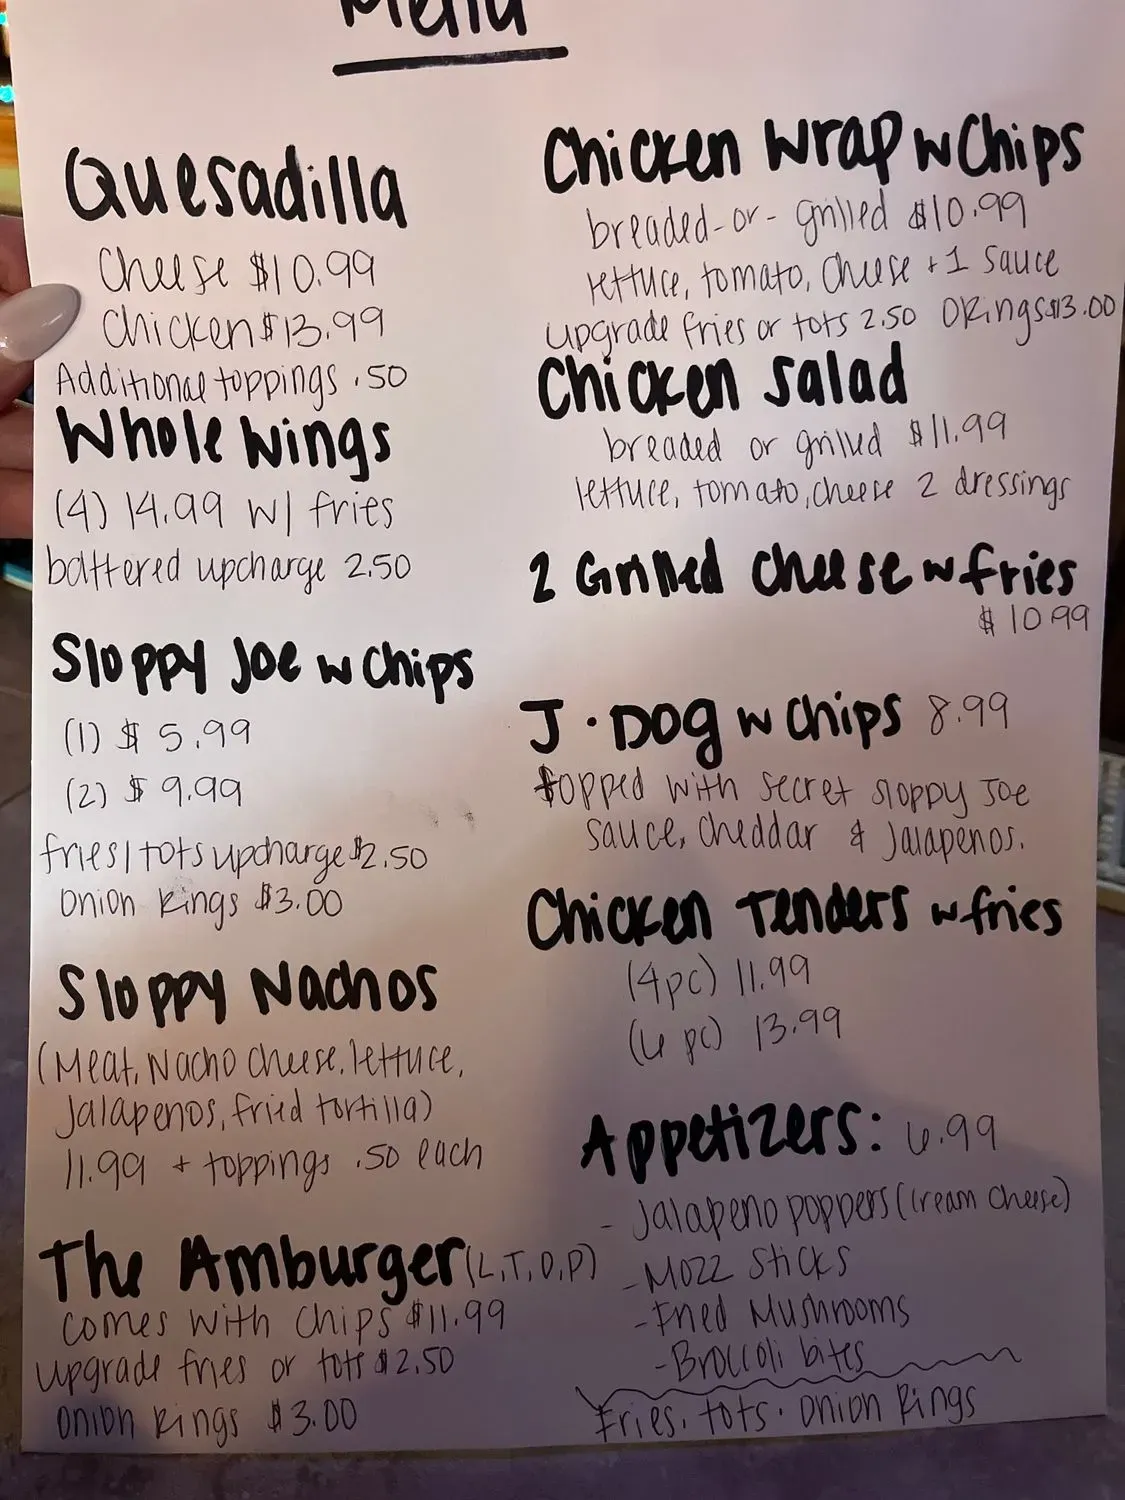 Menu
Quesadilla
Cheese $10.99
Chicken $13.99
Additional toppings .50
Whole Wings
(4) 14.99 w/ fries
battered upcharge 2.50
Sloppy Joe w Chips
(1) $ 5.99
(2) $ 9.99
fries/tots upcharge $2.50
Onion Rings $3.00
Sloppy Nachos
(Meat, Nacho Cheese, lettuce,
Jalapenos, fried tortilla)
11.99 + toppings .50 each
The Amburger (L,T,O,P)
comes with Chips $11.99
upgrade fries or tots $2.50
Onion Rings $3.00
Chicken Wrap w Chips
breaded-or-grilled $10.99
lettuce, tomato, cheese + 1 sauce
upgrade fries or tots 2.50 O Rings $3.00
Chicken Salad
breaded or grilled $11.99
lettuce, tomato, cheese 2 dressings
2 Grilled Cheese w fries
$10.99
J-Dog w Chips 8.99
topped with secret sloppy Joe
sauce, cheddar & jalapenos.
Chicken Tenders w fries
(4pc) 11.99
(6 pc) 13.99
Appetizers: 6.99
- Jalapeno poppers (Cream Cheese)
- Mozz Sticks
- Fried Mushrooms
- Broccoli bites
Fries. tots. Onion Rings